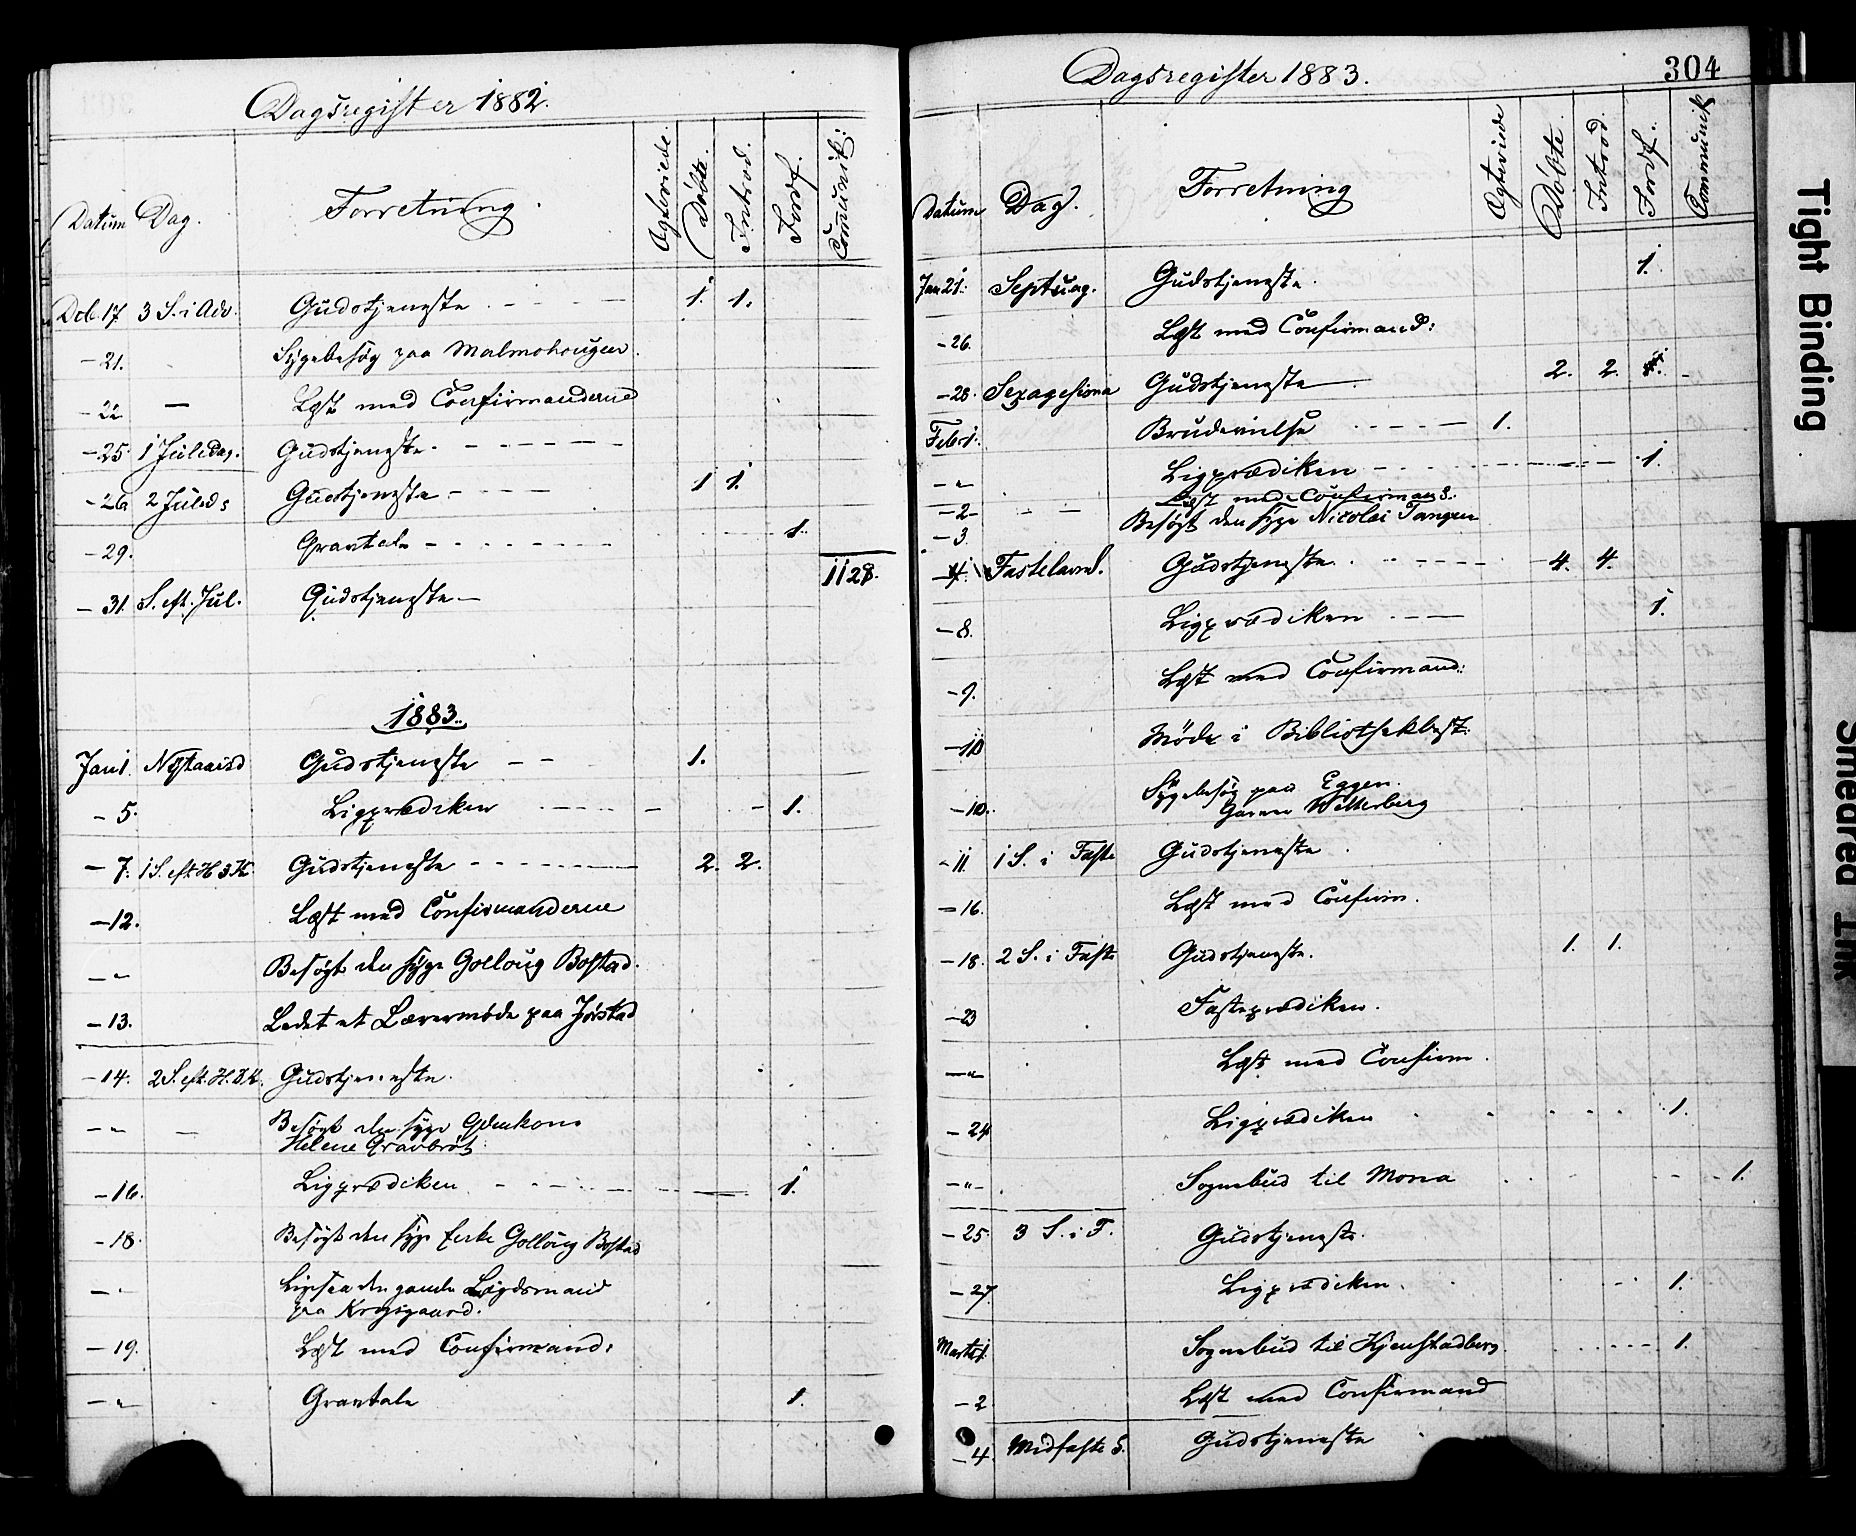 Dagsregister 1882.
Datum Dag. Forretning. Ægteviede. Döbte. Introd. Jordf. Communik:
Dcb. 17 3 S. i Adv. Gudstjeneste 1. 1.
- 21. Sygebesøg paa Malmohougen.
- 22 — Læst med Confirmanderne
- 25 1 Juledag. Gudstjeneste.
- 26 2 Juleds Gudstjeneste 1 1.
- 29. Gravtale 1.
1128.
- 31. S. eft. Jul. Gudstjeneste
1883.
Jan 1. Nytaarsd Gudstjeneste 1.
- 5. Ligprædiken 1.
- 7. 1 S. eft. H 3 K. Gudstjeneste 2. 2.
- 12. Læst med Confirmanderne
- " Besøgt den syge Golloug Bostad.
- 13. Ledet et Lærermöde paa Jörstad
- 14. 2 S. eft. H. 3 K. Gudstjeneste.
- " — Besøgt den syge
Helene Gravbröt.
- 16. Ligprædiken 1.
- 18. Besøgt den syge Golloug Bostad
- " den gamle Lægdsmand
paa
- 19. Læst med Confirmand:
- " Gravtale 1.
Dagsregister 1883.
304
Datum Dag. Forretning Ægteviede Döbte. Introd. Jordf. Communik
Jan 21. Septuag. Gudstjeneste. 1.
- 26. Læst med Confirmand:
- 28. Sexagesima Gudstjeneste 2. 2.
Febr 1. Brudevielse 1.
- " Ligprædiken 1.
- 2 - Læst med Confirmand.
- 3. Besøgt den syge Nicolai Tangen
- 4. Fastelavnd. Gudstjeneste. 4. 4.
- 8. Ligprædiken 1.
- 9. Læst med Confirmand:
- 10 Möde i Bibliothekbest.
- 10. Sygebesøg paa Eggen.
Wetterberg
- 11. 1 S. i Faste Gudstjeneste
- 16. Læst med Confirm.
- 18. 2 S. i Faste Gudstjeneste. 1. 1.
- 23 Fasteprædiken.
- " Læst med Confirm.
- 24 Ligprædiken 1.
- " Sognebud til Mona 1.
- 25. 3 S. i F. Gudstjeneste.
- 27. Ligprædiken. 1.
Marts 1. Sognebud til Kjenstadberg. 1.
- 2 Læst med Confirmand
- 4. Midfaste S. Gudstjeneste
Tight Binding
Smeared Ink